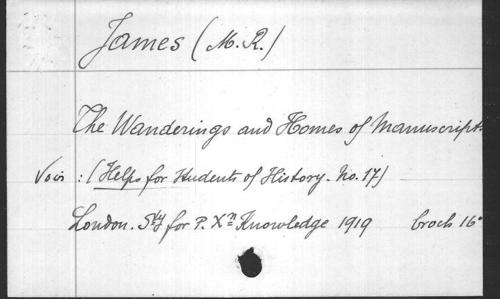 James (M. R.)
The Wanderings and Homes of Manuscripts
Voir : (Helps for Students of History. No. 17)
London. Sty for P. Xn Knowledge 1919 broch 16°